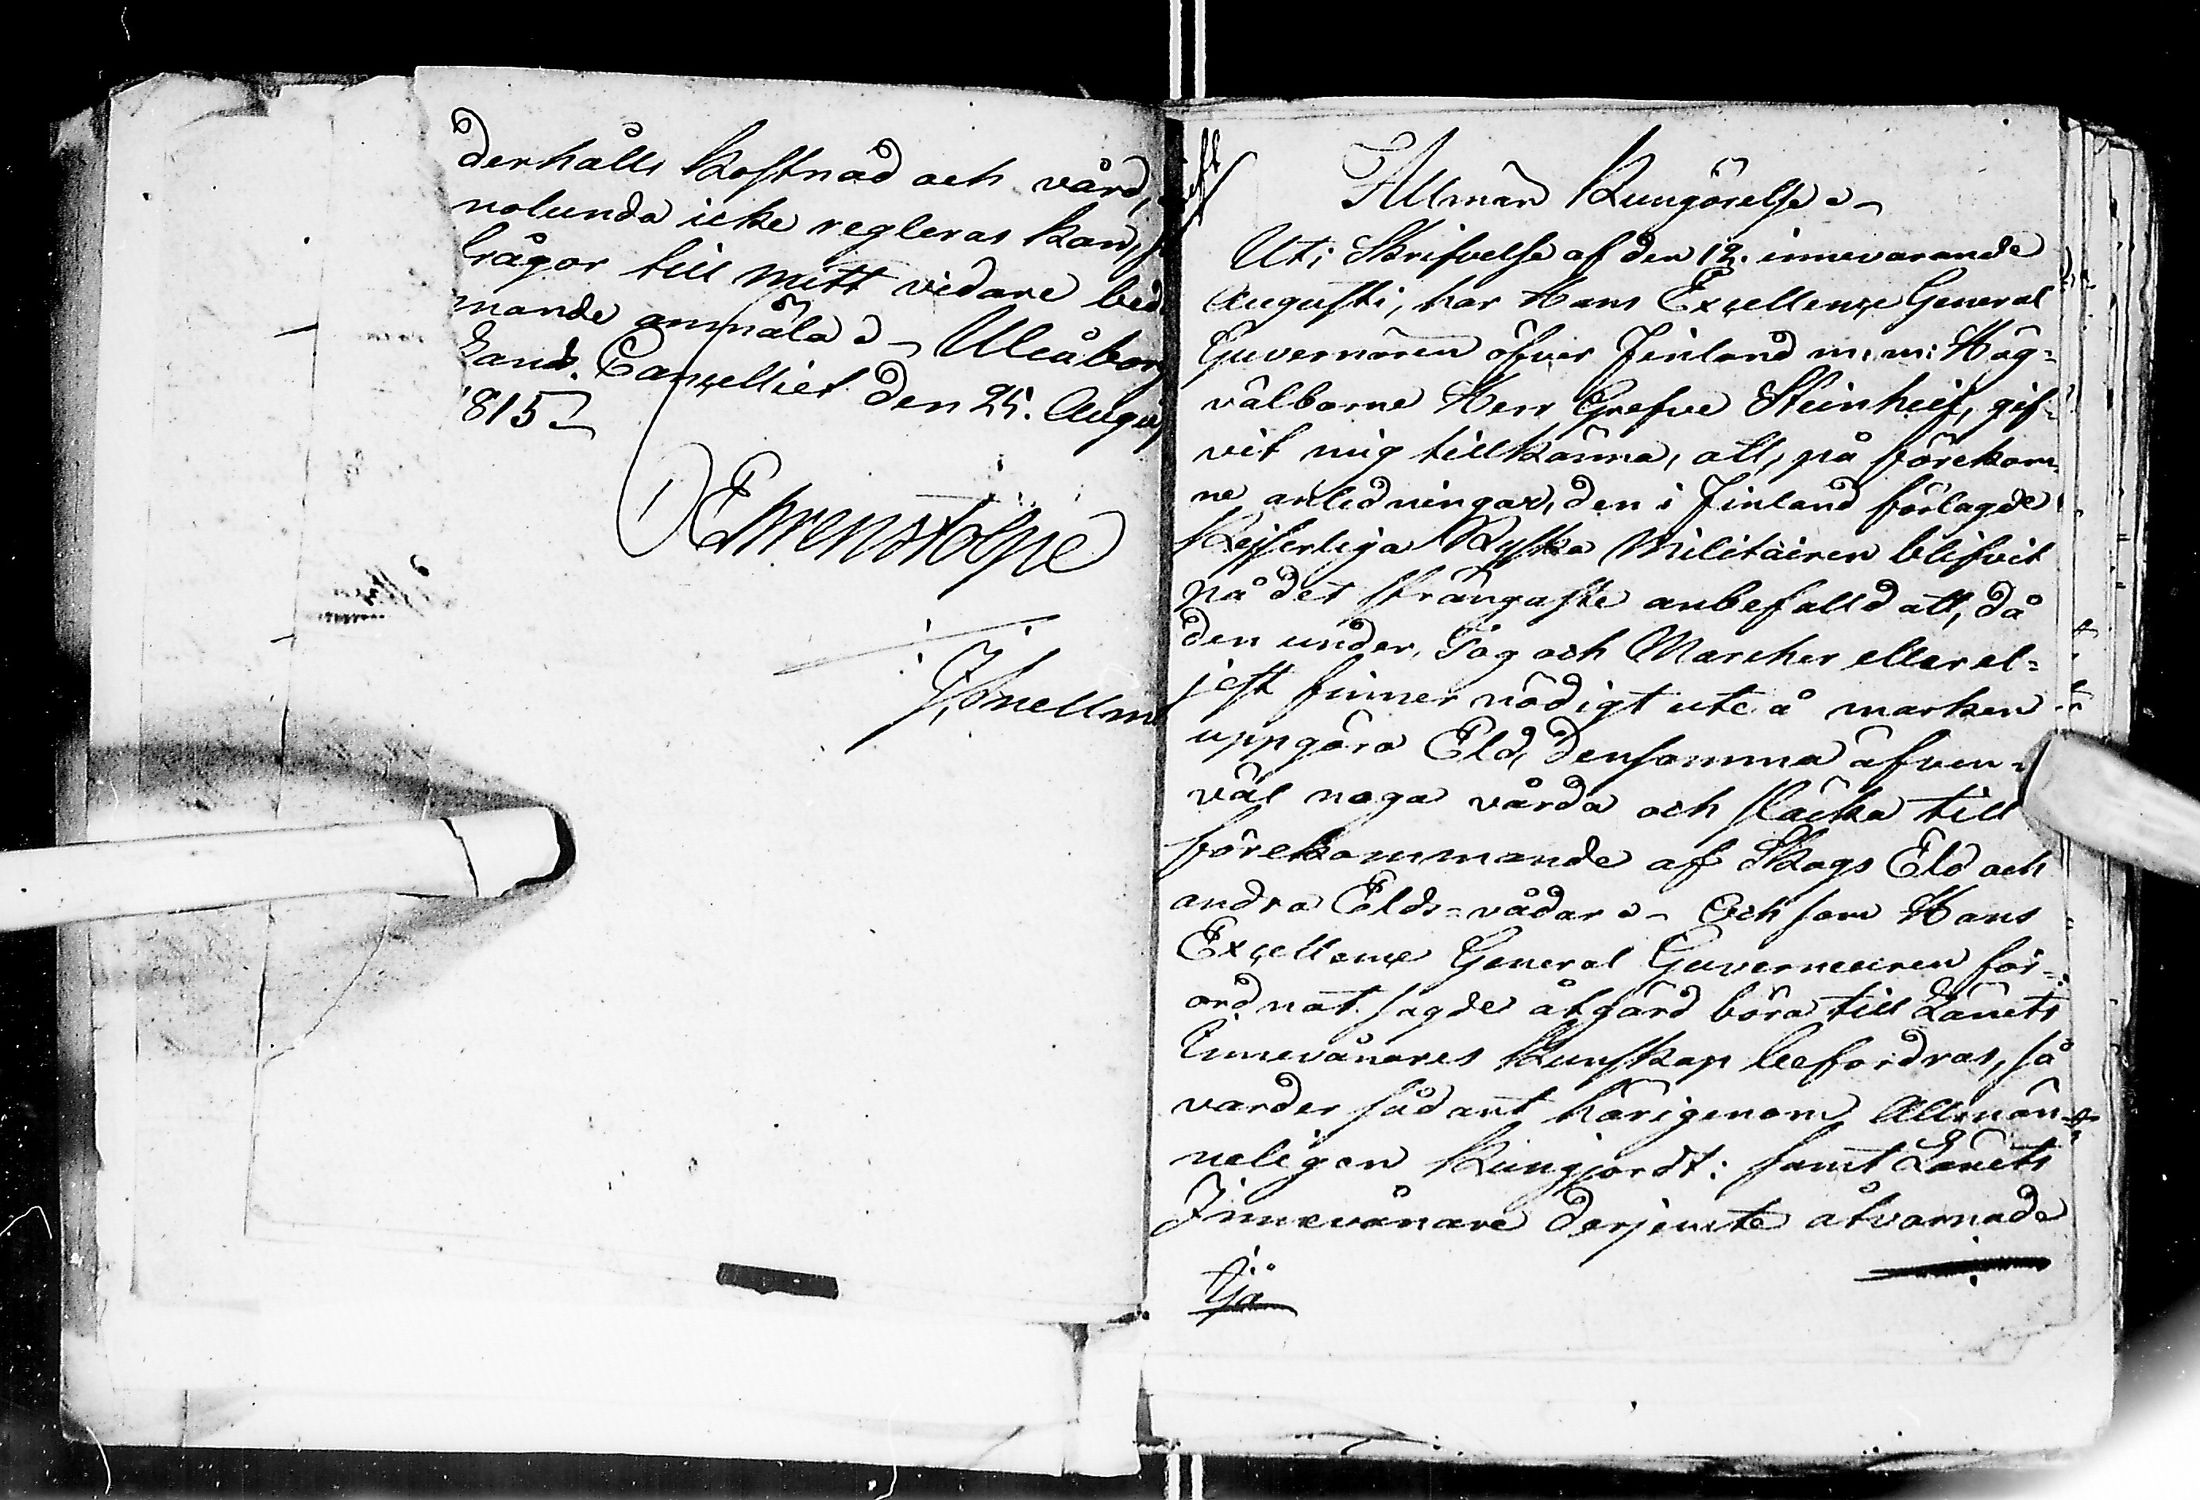 derhålls Kostnad och vård,
nolunda icke regleras kan,
frågor till mitt vidare bed
mande anmäla. Uleåborg
Lands Cancelliet den 25. Augu
1815.
Ehrenstolpe
J. Snellm
Allmän Kungörelse.
Uti Skrifvelse af den 12. innevarande
Augusti, har Hans Excellence General
Guvernören öfver Finland m: m: Hög=
välborne Herr Grefve Steinheil, gif=
vit mig tillkänna, att, på förekom=
ne anledningar, den i Finland förlagde
Kejserliga Ryska Militairen blifvit
på det strängaste anbefalld att, då
den under, Tåg och Marcher eller el=
jest finner nödigt ute å marken
uppgöra Eld, densamma äfven=
väl noga vårda och släcka till
förekommande af Skogs Eld och
andra Elds=vådar. Och som Hans
Excellence General Guverneuren för=
ordnat sagde åtgärd böra till Länets
Innevånares Kunskap befordras, så
varder sådant härigenom Allmän=
neligen Kungjordt: samt Länets
Innevånare derjemte åtvarnade